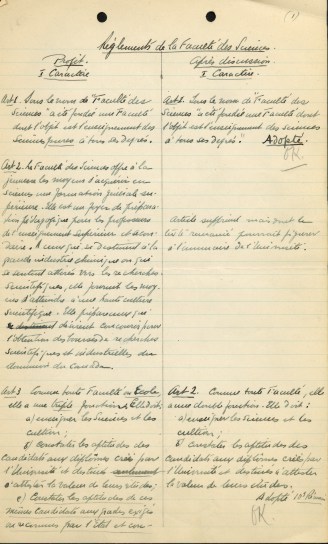 (1)
Règlements de la Faculté des Sciences
Projet.
I Caractère
Art 1. Sous le nom de "Faculté des
Sciences" a été fondée une Faculté
dont l'objet est l'enseignement des
Sciences pures à tous ses degrés.
Art 2. La Faculté des Sciences offre à la
jeunesse les moyens d'acquérir en
sciences une formation spéciale su-
périeure. Elle est un foyer de prépara-
tion pédagogique pour les professeurs
de l'enseignement supérieur et secon-
daire. A ceux qui se destinent à la
grande industrie chimique ou qui
se sentent attirés vers les recherches
scientifiques, elle fournit les moy-
ens d'atteindre à une haute culture
scientifique. Elle prépare ceux que
désirent
l'attention des
scientifiques et industrielles du
Canada.
Art 3 Comme toute Faculté ou Ecole,
elle a une triple fonction. Elle doit:
a) enseigner les Sciences et les
cultiver;
b) constater les aptitudes des
candidats aux diplômes créés par
l'Université et destinés
à attester la valeur de leurs études.
c) Constater les aptitudes de ces
mêmes candidats aux grades exigés
ou reconnus par l'état et con-
Après discussion
I. Caractère.
Art 1. Sous le nom de "Faculté des
Sciences" a été fondée une Faculté dont
l'objet est l'enseignement des sciences
à tous ses degrés. Adopté.
OK.
article supprimé mais dont le
particulier pourrait figurer
à l'annuaire de l'Université.
Art 2. Comme toute Faculté, elle
a une double fonction. Elle doit:
a) enseigner les sciences et les
cultiver;
b) Constater les aptitudes des
candidats aux diplômes créés par
l'Université et destinés à attester
la valeur de leurs études.
Adopté
OK.